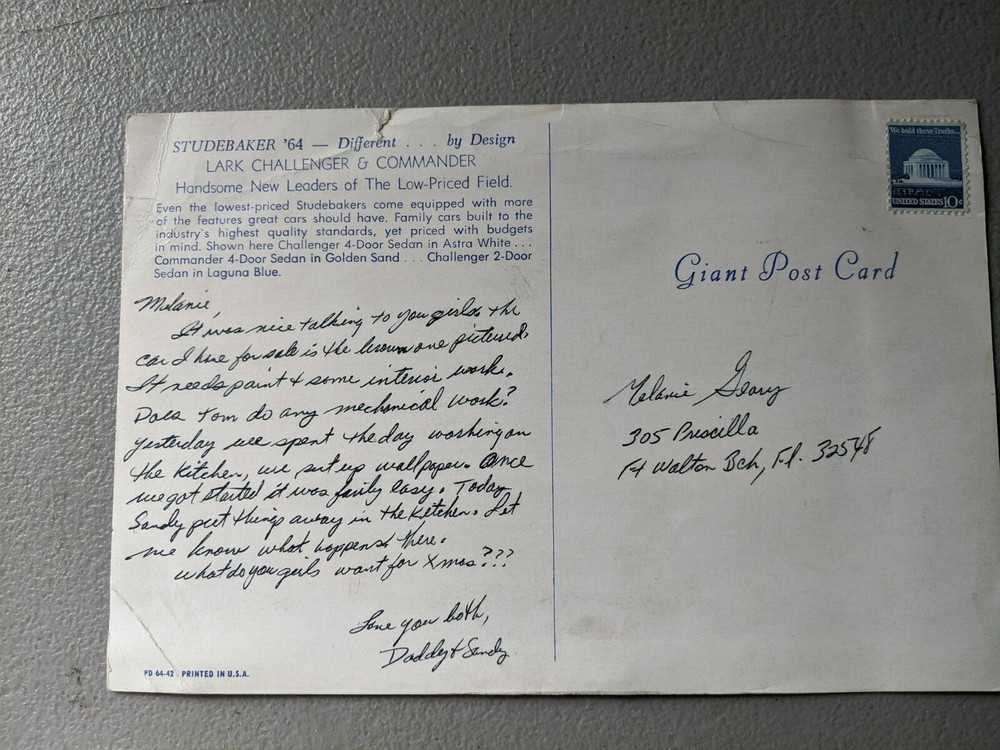 STUDEBAKER '64 — Different . . . by Design
LARK CHALLENGER & COMMANDER
Handsome New Leaders of The Low-Priced Field.
Even the lowest-priced Studebakers come equipped with more
of the features great cars should have. Family cars built to the
industry's highest quality standards, yet priced with budgets
in mind. Shown here Challenger 4-Door Sedan in Astra White . . .
Commander 4-Door Sedan in Golden Sand . . . Challenger 2-Door
Sedan in Laguna Blue.
Melanie,
It was nice talking to you girls. the
car I have for sale is the brown one pictured.
It needs paint & some interior work.
Does Tom do any mechanical work?
Yesterday we spent the day working on
the Kitchen, we put up wallpaper. Once
we got started it was fairly easy. Today
Sandy put things away in the Kitchen. Let
me know what happens there.
what do you girls want for Xmas???
Love you both,
Daddy & Sandy
PD 64-42 PRINTED IN U.S.A.
We hold these Truths...
UNITED STATES 10c
Giant Post Card
Melanie Geary
305 Priscilla
Ft Walton Bch, Fl. 32548